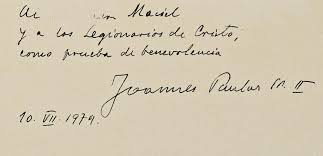 Al Maciel
y a los Legionarios de Cristo,
como prueba de benevolencia
Joannes Paulus PP. II
10. VII. 1979.